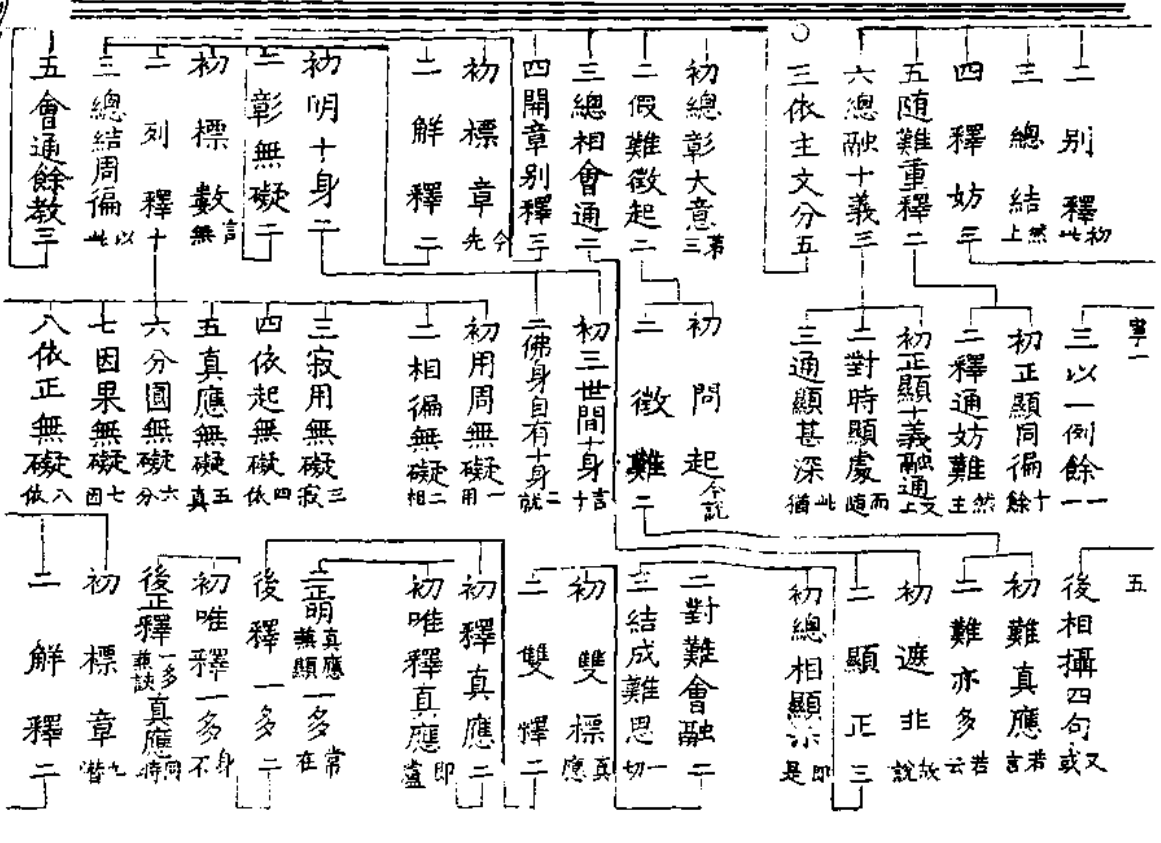 二別釋初此
三總結然上
四釋妨三
五随難重釋二
六總融十義三
○三依主文分五
初總彰大意第三
二假難徵起二
三總相會通二
四開章別釋三
初標章今先
二解釋二
初明十身二
二彰無礙二
初標數言無
二列釋十
三總結周徧以此
五會通餘教三
三以一例餘一一
初正顯同徧十餘
二釋通妨難然主
初正顯十義融通
二對時顯處而随
三通顯甚深此猶
初問起今説
二徵難二
初三世間十身言十
二佛身自有十身二就
初用周無礙一用
二相徧無礙二相
三寂用無礙三寂
四依起無礙四依
五真應無礙五真
六分圓無礙六分
七因果無礙七因
八依正無礙八依
五
後相攝四句又或
初難真應若言
二難亦多若云
初遮非故説
二顯正三
初總相顯示即是
二對難會融二
三結成難思一切
初雙標真應
二雙釋二
初釋真應二
初唯釋真應即盧
二正明真應兼顯一多常在
後釋一多二
初唯釋一多身不
後正釋一多兼談真應同時
初標章
二解釋二